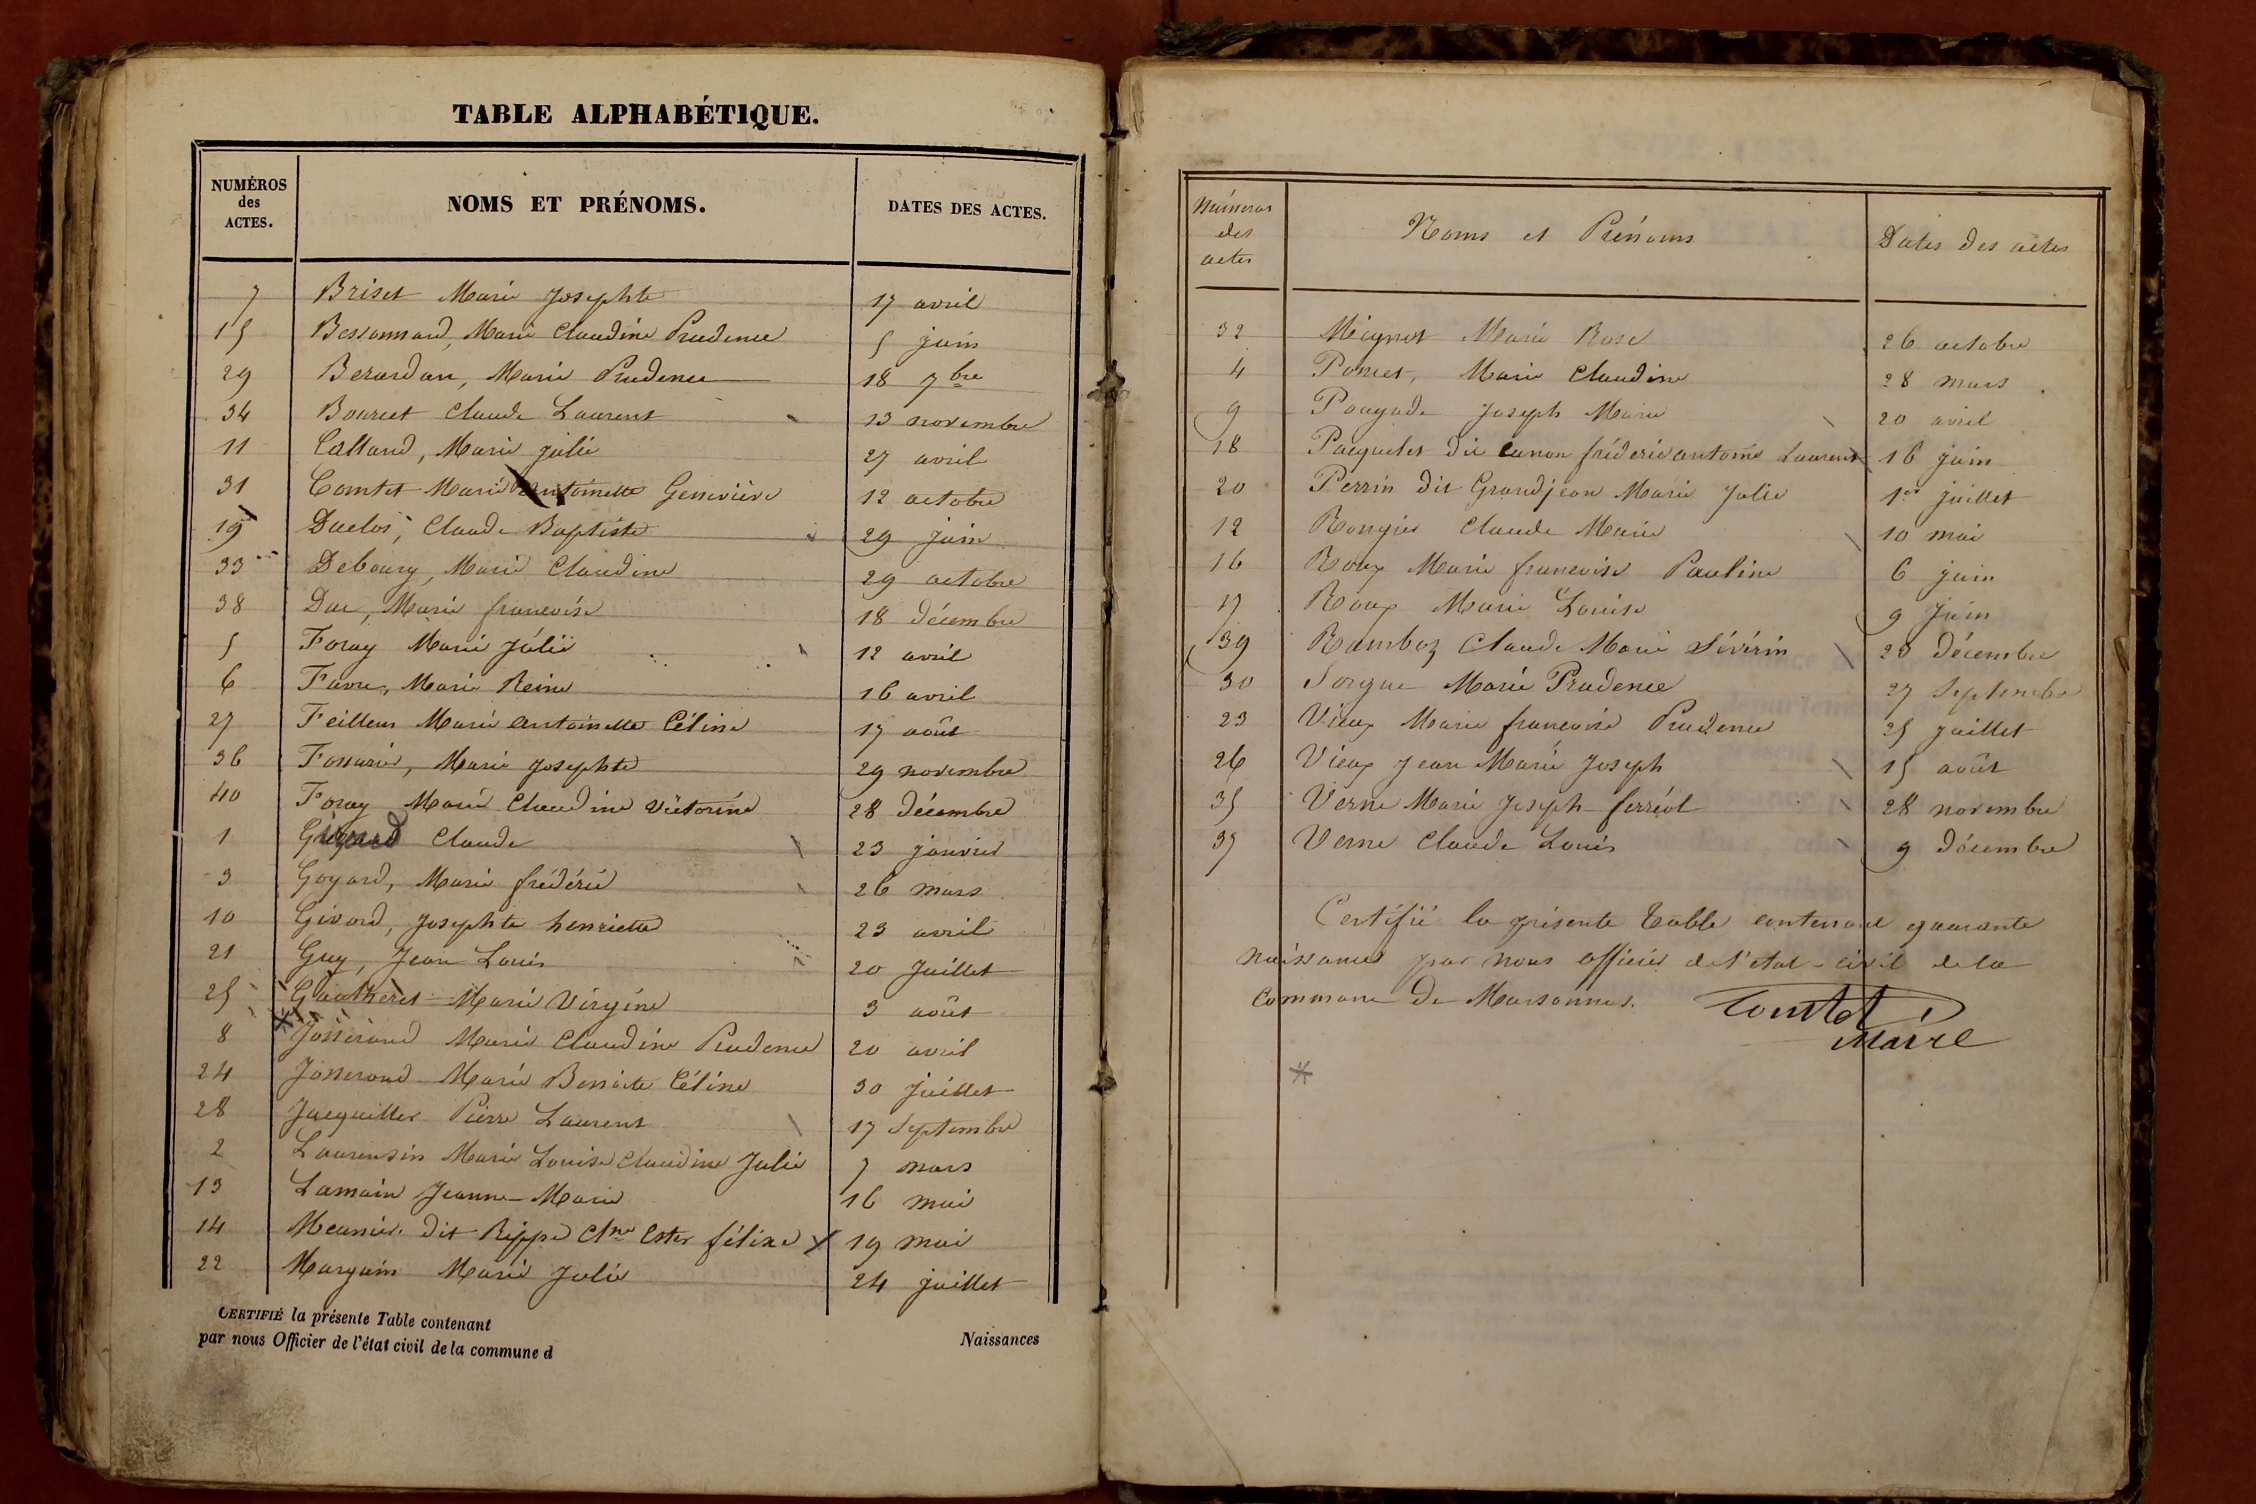 TABLE ALPHABÉTIQUE.
NUMÉROS des ACTES. NOMS ET PRÉNOMS. DATES DES ACTES.
7 Briset Marie Josephte 17 avril
15 Bessonnard, Marie Claudine Prudence 5 juin
29 Berardan, Marie Prudence 18 7bre
34 Bourcet Claude Laurent 13 novembre
11 Calland, Marie julie 27 avril
31 Comtet Marie antoinette Geneviève 12 octobre
19 Duclos, Claude Baptiste 29 juin
33 Debourg, Marie Claudine 29 octobre
38 Duc, Marie francoise 18 décembre
5 Foray Marie Julie 12 avril
6 Favre, Marie Reine 16 avril
27 Feillens Marie antoinette Céline 17 août
36 Marie Josephte 29 novembre
40 Foray Marie Claudine victorine 28 décembre
1 Claude 23 janvier
3 Goyard, Marie frédéric 26 mars
10 Givord, Josephte henriette 23 avril
21 Guy, Jean Louis 20 Juillet
25 Gautheret Marie Virginé 3 août
8 Josserand Marie Claudine Prudence 20 avril
24 Josserand Marie Benoite Céline 30 Juillet
28 Jacquiller Pierre Laurent 17 Septembre
2 Laurensin Marie Louise Claudine Julie 7 mars
13 Lamain Jeanne-Marie 16 mai
14 Meunier dit Rippe Cne Ester féline 19 mai
22 Margain Marie Julie 24 juillet
CERTIFIÉ la présente Table contenant Naissances
par nous Officier de l'état civil de la commune d
Numéros des actes Noms et Prénoms Dates des actes
32 Mignot Marie Rose 26 octobre
4 Poncet, Marie Claudine 28 mars
9 Pougade Joseph Marie 20 avril
18 Pacquelet dit canon fréderic antoine Laurent 16 juin
20 Perrin dit Grandjean Marie Julie 1er juillet
12 Rongier Claude Marie 10 mai
16 Roux Marie francoise Pauline 6 juin
17 Roux Marie Louise 9 Juin
39 Ramboz Claude Marie Sévérin 20 décembre
30 Sorgue Marie Prudence 27 Septembre
23 Vieux Marie francoise Prudence 25 juillet
26 Vieux Jean Marie Joseph 15 août
35 Verne Marie Joseph ferréol 28 novembre
37 Verne Claude Louis 9 décembre
Certifié la présente Table contenant quarante
naissances par nous officier de l'etat-civil de la
commune de Marsonnas. Comtet
Maire